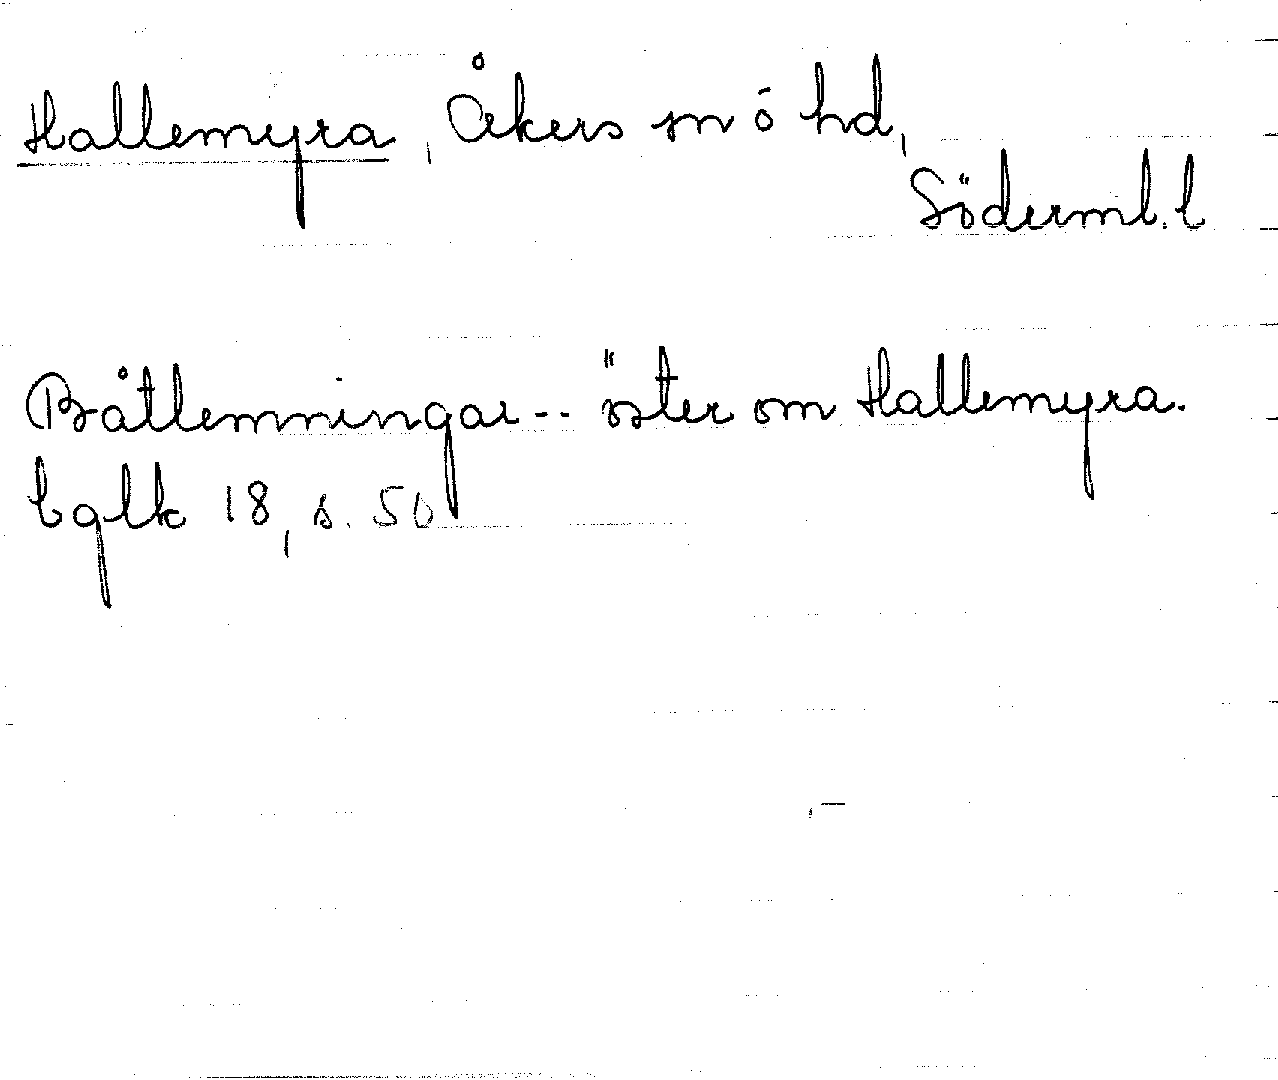 Hallemyra, Åkers sn ó hd,
Söderml. l
Båtlemningar -- öster om Hallemyra.
bglk 18, s. 50